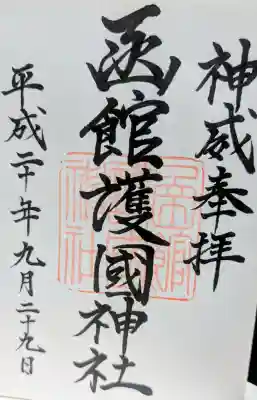 神威奉拝
函館護國神社
平成二十年九月二十九日